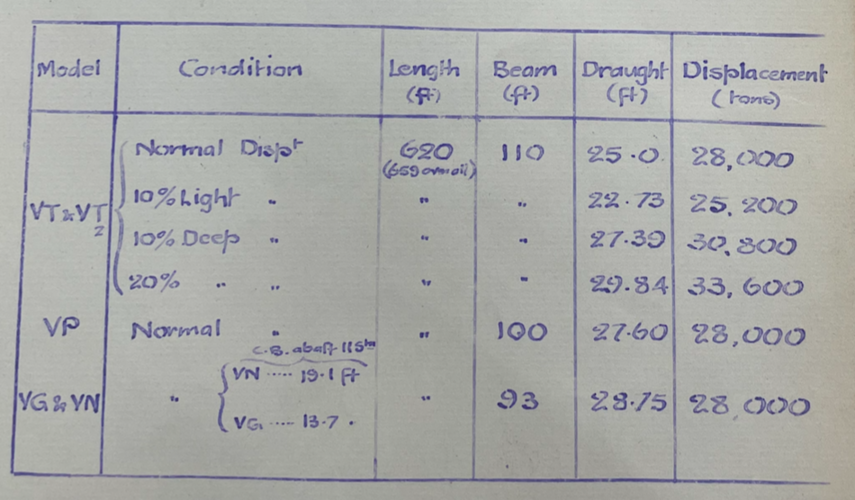 Model Condition Length Beam Draught Displacement
(ft) (ft) (ft) (tons)
Normal Dispt 620 110 25.0 28,000
(659 overall)
10% Light " " " 22.73 25,200
VT & VT2
10% Deep " " " 27.39 30,800
20% " " " " 29.84 33,600
VP Normal " " 100 27.60 28,000
C.B. abaft
VN ..... 19.1 ft
VG & VN " " 93 28.75 28,000
VG ..... 13.7 "